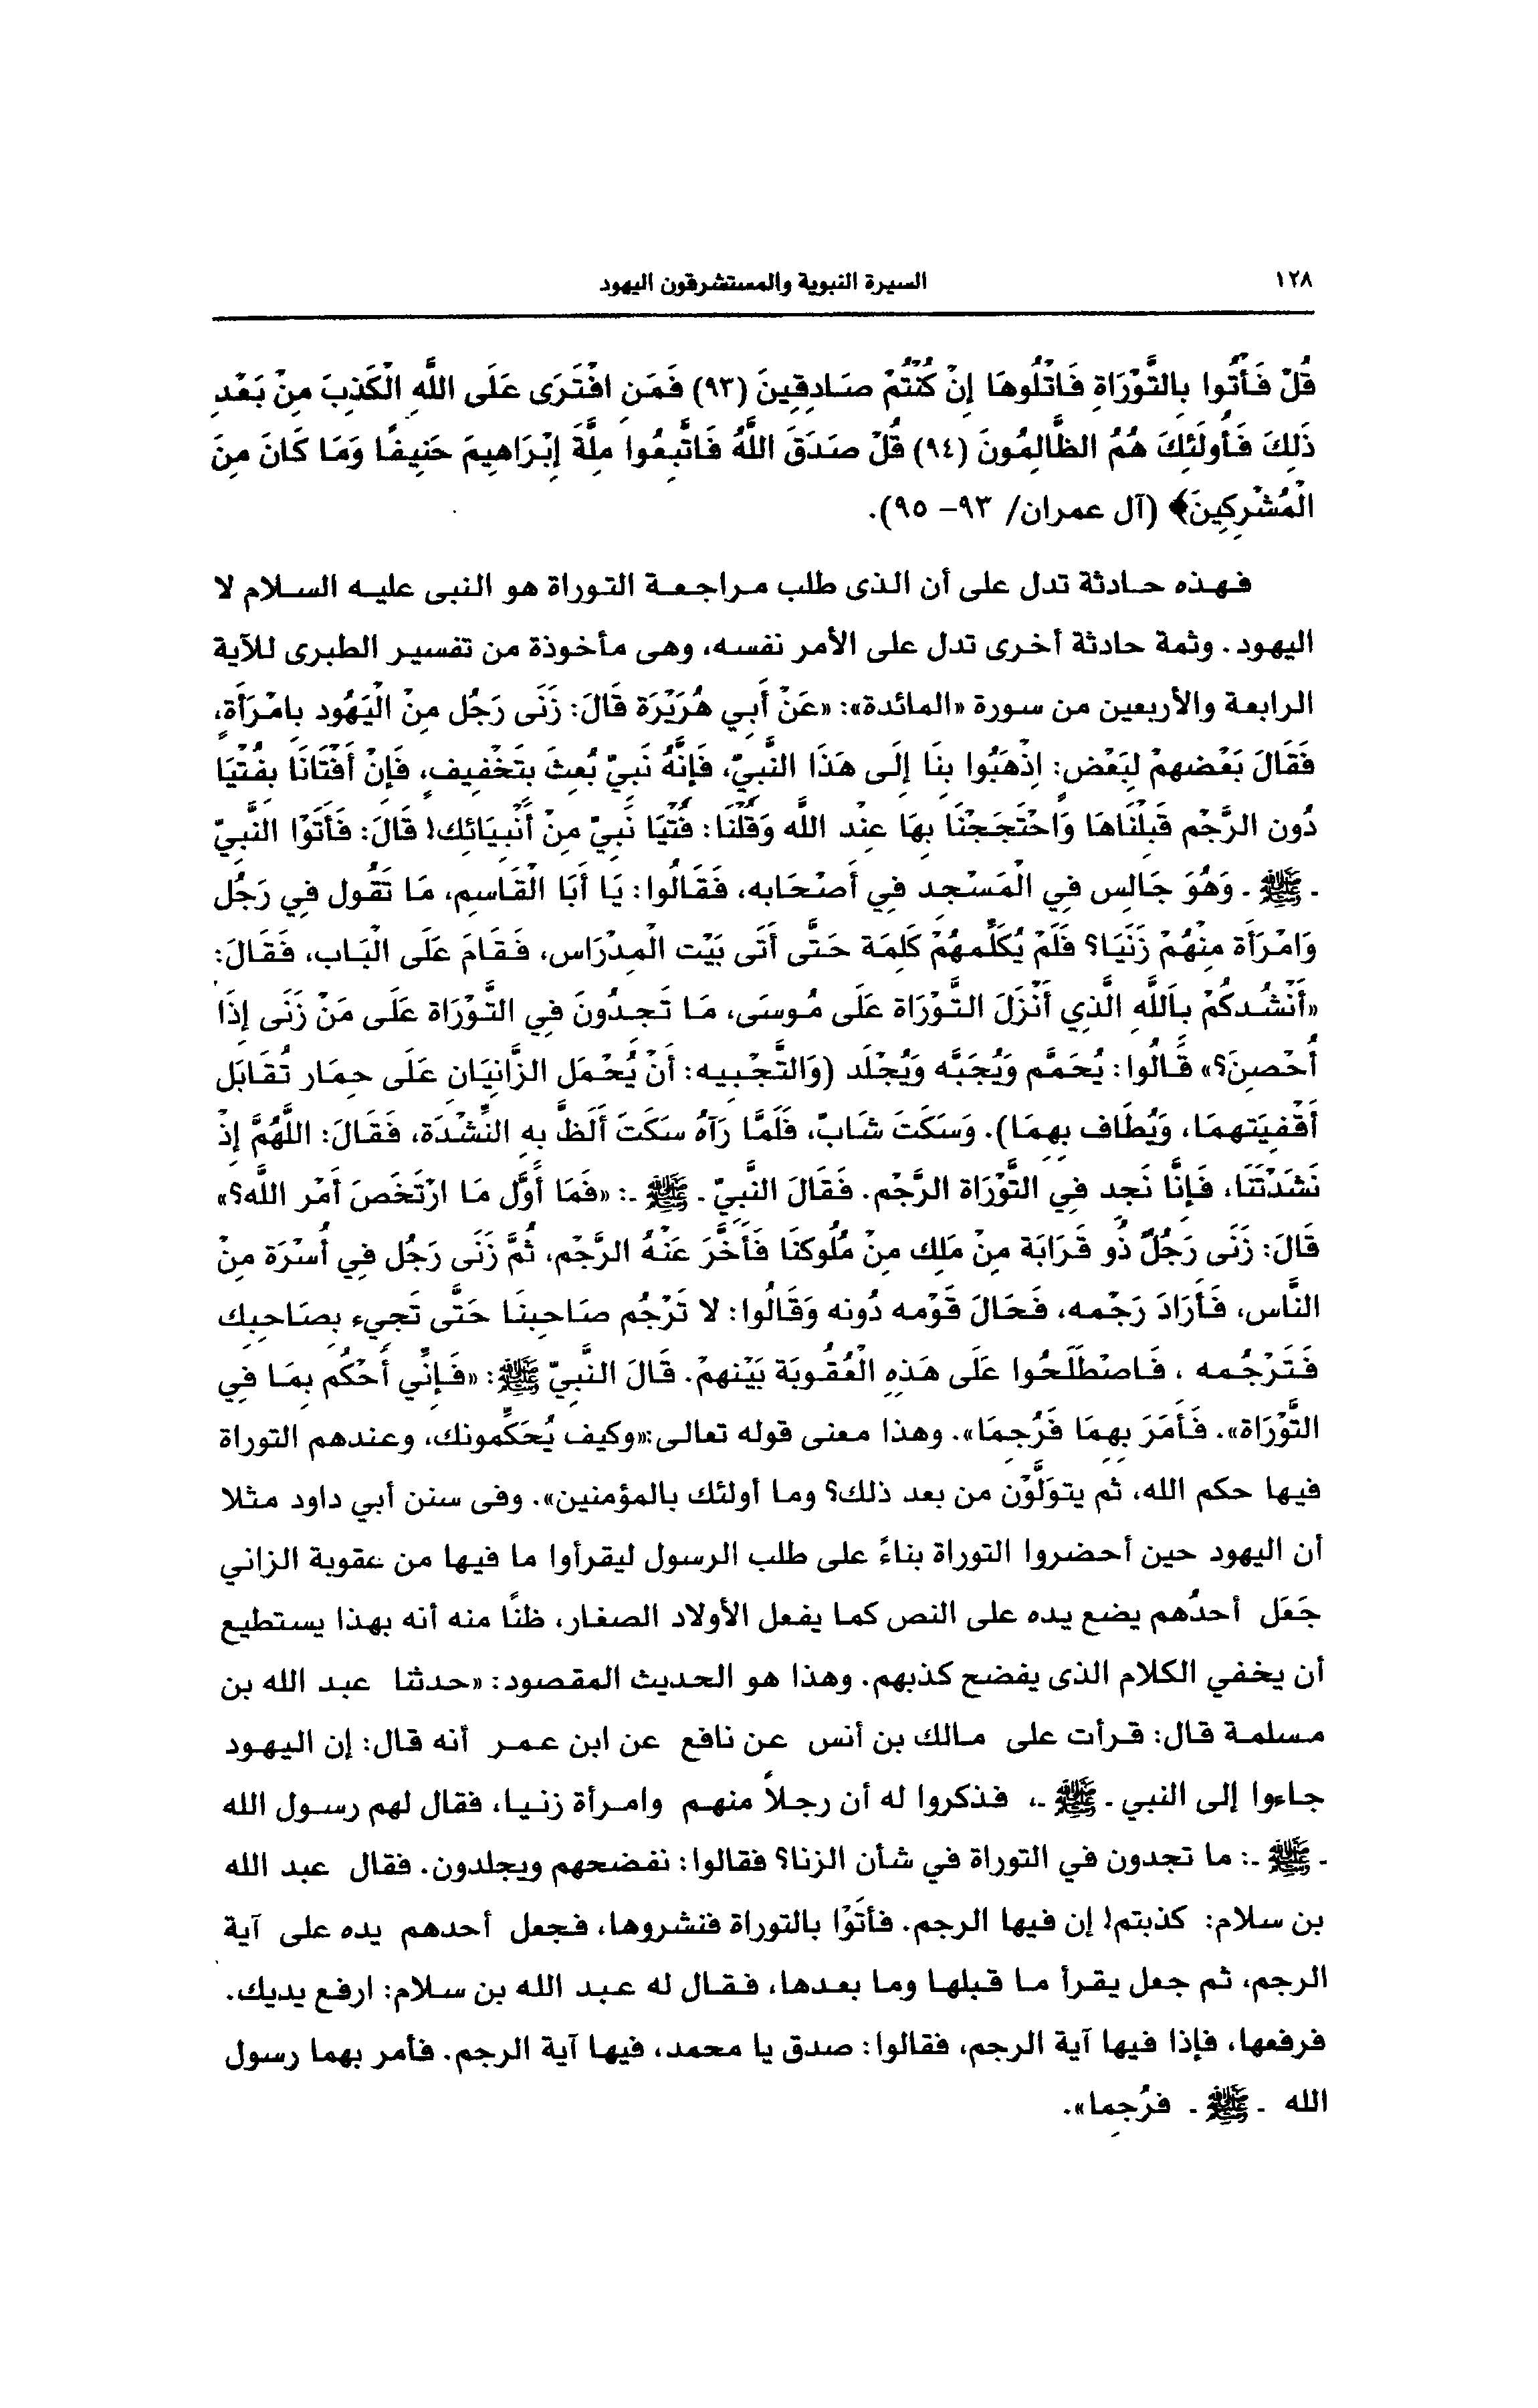 ١٢٨ السيرة النبوية والمستشرقون اليهود
قُلْ فَأْتُوا بِالتَّوْرَاةِ فَاتْلُوهَا إِنْ كُنْتُمْ صَادِقِينَ (٩٣) فَمَنِ افْتَرَى عَلَى اللَّهِ الْكَذِبَ مِنْ بَعْدِ
ذَلِكَ فَأُولَئِكَ هُمُ الظَّالِمُونَ (٩٤) قُلْ صَدَقَ اللَّهُ فَاتَّبِعُوا مِلَّةَ إِبْرَاهِيمَ حَنِيفًا وَمَا كَانَ مِنَ
الْمُشْرِكِينَ﴾ (آل عمران/ ٩٣– ٩٥).
فهذه حادثة تدل على أن الذى طلب مراجعة التوراة هو النبى عليه السلام لا
اليهود. وثمة حادثة أخرى تدل على الأمر نفسه، وهى مأخوذة من تفسير الطبرى للآية
الرابعة والأربعين من سورة «المائدة»: «عَنْ أَبِي هُرَيْرَة قَالَ: زَنَى رَجُل مِنْ الْيَهُود بِامْرَأَةٍ،
فَقَالَ بَعْضهمْ لِبَعْضٍ: اِذْهَبُوا بِنَا إِلَى هَذَا النَّبِيّ، فَإِنَّهُ نَبِيّ بُعِثَ بِتَخْفِيفٍ، فَإِنْ أَفْتَانَا بِفُتْيَا
دُون الرَّجْم قَبِلْنَاهَا وَاحْتَجَجْنَا بِهَا عِنْد اللَّه وَقُلْنَا: فُتْيَا نَبِيّ مِنْ أَنْبِيَائِك! قَالَ: فَأَتَوْا النَّبِيّ
- ﷺ - وَهُوَ جَالِس فِي الْمَسْجِد فِي أَصْحَابه، فَقَالُوا: يَا أَبَا الْقَاسِم، مَا تَقُول فِي رَجُل
وَامْرَأَة مِنْهُمْ زَنَيَا؟ فَلَمْ يُكَلِّمهُمْ كَلِمَة حَتَّى أَتَى بَيْت الْمِدْرَاس، فَقَامَ عَلَى الْبَاب، فَقَالَ:
«أَنْشُدكُمْ بِاَللَّهِ الَّذِي أَنْزَلَ التَّوْرَاة عَلَى مُوسَى، مَا تَجِدُونَ فِي التَّوْرَاة عَلَى مَنْ زَنَى إِذَا
أُحْصِنَ؟» قَالُوا: يُحَمَّم وَيُجَبَّه وَيُجْلَد (وَالتَّجْبِيه: أَنْ يُحْمَل الزَّانِيَانِ عَلَى حِمَار تُقَابَل
أَقْفِيَتهمَا، وَيُطَاف بِهِمَا). وَسَكَتَ شَابّ، فَلَمَّا رَآهُ سَكَتَ أَلَظَّ بِهِ النِّشْدَة، فَقَالَ: اللَّهُمَّ إِذْ
نَشَدْتَنَا، فَإِنَّا نَجِد فِي التَّوْرَاة الرَّجْم. فَقَالَ النَّبِيّ - ﷺ -: «فَمَا أَوَّل مَا ارْتَخَصَ أَمْر اللَّه؟»
قَالَ: زَنَى رَجُلٌ ذُو قَرَابَة مِنْ مَلِك مِنْ مُلُوكنَا فَأَخَّرَ عَنْهُ الرَّجْم، ثُمَّ زَنَى رَجُل فِي أُسْرَة مِنْ
النَّاس، فَأَرَادَ رَجْمه، فَحَالَ قَوْمه دُونه وَقَالُوا: لا تَرْجُم صَاحِبنَا حَتَّى تَجِيء بِصَاحِبِك
فَتَرْجُمه ، فَاصْطَلَحُوا عَلَى هَذِهِ الْعُقُوبَة بَيْنهمْ. قَالَ النَّبِيّ ﷺ: «فَإِنِّي أَحْكُم بِمَا فِي
التَّوْرَاة». فَأَمَرَ بِهِمَا فَرُجِمَا». وهذا معنى قوله تعالى:«وكيف يُحَكِّمونك، وعندهم التوراة
فيها حكم الله، ثم يتوَلَّوْن من بعد ذلك؟ وما أولئك بالمؤمنين». وفى سنن أبي داود مثلا
أن اليهود حين أحضروا التوراة بناءً على طلب الرسول ليقرأوا ما فيها من عقوبة الزاني
جَعَل أحدُهم يضع يده على النص كما يفعل الأولاد الصغار، ظنًا منه أنه بهذا يستطيع
أن يخفي الكلام الذى يفضح كذبهم. وهذا هو الحديث المقصود: «حدثنا عبد الله بن
مسلمة قال: قرأت على مالك بن أنس عن نافع عن ابن عمر أنه قال: إن اليهود
جاءوا إلى النبي - ﷺ -، فذكروا له أن رجلاً منهم وامرأة زنيا، فقال لهم رسول الله
- ﷺ -: ما تجدون في التوراة في شأن الزنا؟ فقالوا: نفضحهم ويجلدون. فقال عبد الله
بن سلام: كذبتم! إن فيها الرجم. فأتَوْا بالتوراة فنشروها، فجعل أحدهم يده على آية
الرجم، ثم جعل يقرأ ما قبلها وما بعدها، فقال له عبد الله بن سلام: ارفع يديك.
فرفعها، فإذا فيها آية الرجم، فقالوا: صدق يا محمد، فيها آية الرجم. فأمر بهما رسول
الله - ﷺ - فرُجِما».